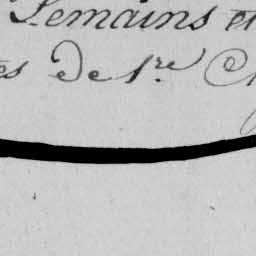 Lemains et
es de 1.re C